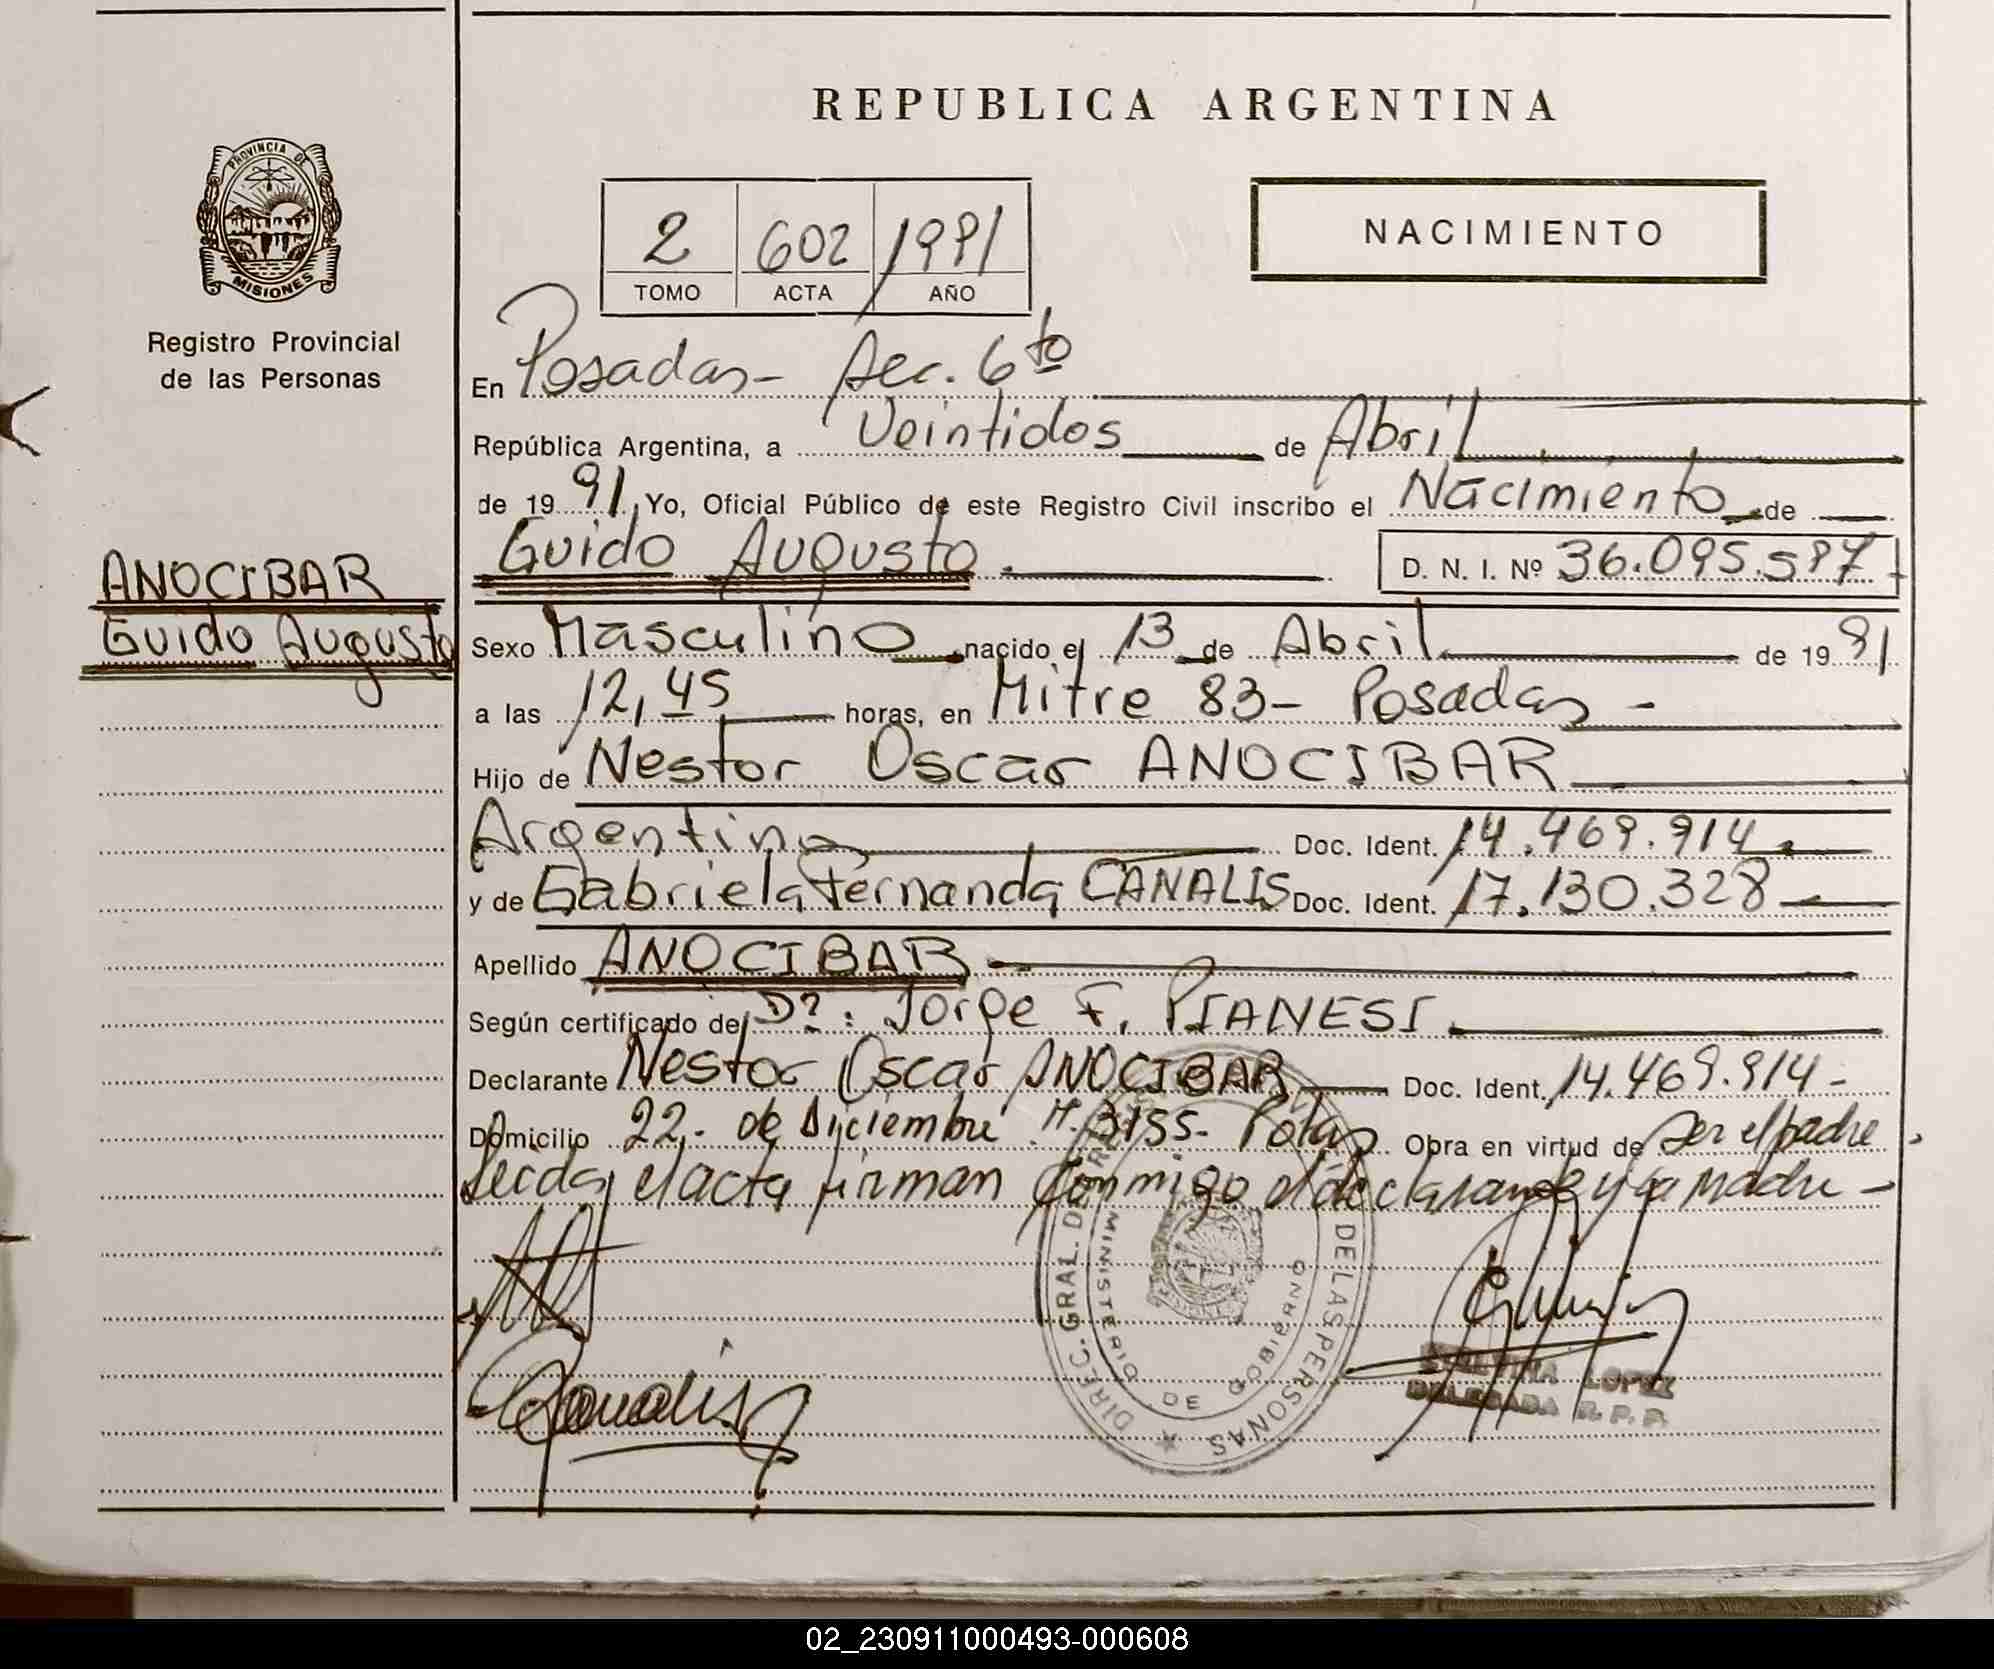 REPUBLICA ARGENTINA
PROVINCIA DE
MISIONES
Registro Provincial
de las Personas
NACIMIENTO
2 602 1991
TOMO ACTA AÑO
En Posadas- Sec. 6to
República Argentina, a Veintidos de Abril
de 19 91, Yo, Oficial Público de este Registro Civil inscribo el Nacimiento de
Guido Augusto. D. N. I. Nº 36.095.587
ANOCIBAR
Guido Augusto
Sexo Masculino nacido el 13 de Abril de 19 91
a las 12,45 horas, en Mitre 83- Posadas -
Hijo de Nestor Oscar ANOCIBAR
Argentina Doc. Ident. 14.469.914
y de Gabriela Fernanda CANALIS Doc. Ident. 17.130.328
Apellido ANOCIBAR
Según certificado de Dr: Jorge F. PIANESI.
Declarante Nestor Oscar ANOCIBAR Doc. Ident. 14.469.914-
Domicilio 22- de Diciembre N. 3155- Pdas Obra en virtud de ser el padre.
Leida el acta firman conmigo el declarante y la madre -
DIREC. GRAL. DEL REGISTRO DE LAS PERSONAS
MINISTERIO DE GOBIERNO
LOPEZ
DELEGADA R. P. P.
02_230911000493-000608